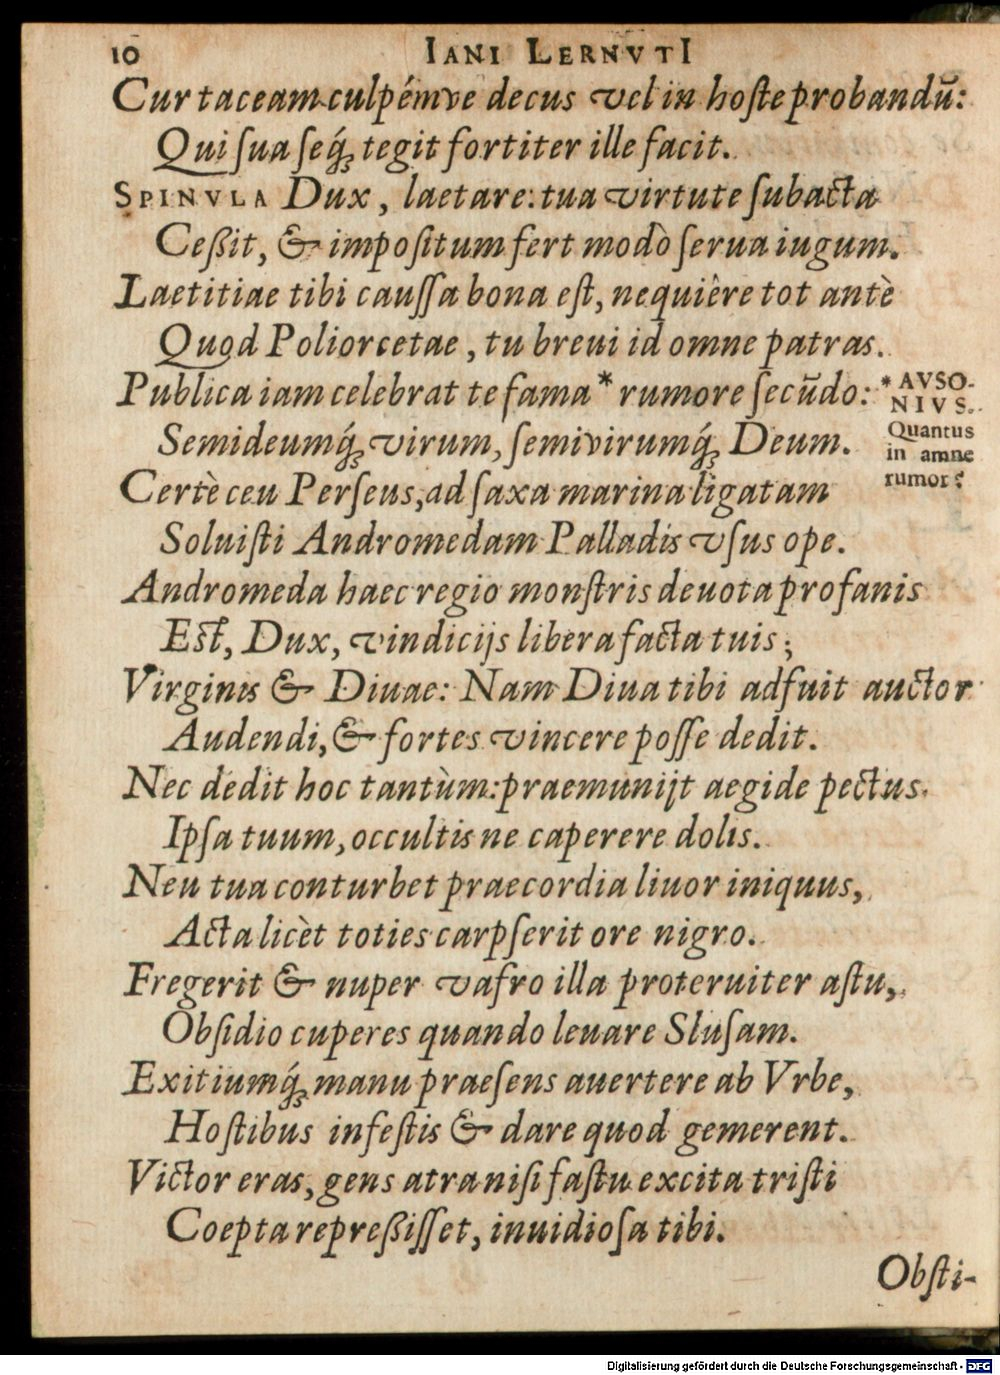 10 IANI LERNVTI
Cur taceam culpémve decus vel in hoſte probandū:
Qui ſua ſeq́ꝫ tegit fortiter ille facit.
SPINVLA Dux, laetare: tua virtute ſubacta
Ceßit, & impoſitum fert modò ſerua iugum.
Laetitiae tibi cauſſa bona eſt, nequiêre tot antè
Quod Poliorcetae, tu breui id omne patras.
Publica iam celebrat te fama * rumore ſecūdo:
Semideumq́ꝫ virum, ſemivirumq́ꝫ Deum.
* AVSO-
NIVS.
Quantus
in amne
rumor?
Certè ceu Perſeus, ad ſaxa marina ligatam
Soluiſti Andromedam Palladis vſus ope.
Andromeda haec regio monſtris deuota profanis
Eſt, Dux, vindicijs libera facta tuis;
Virginis & Diuae: Nam Diua tibi adfuit auctor
Audendi, & fortes vincere poſſe dedit.
Nec dedit hoc tantùm: praemunijt aegide pectus
Ipſa tuum, occultis ne caperere dolis.
Neu tua conturbet praecordia liuor iniquus,
Acta licèt toties carpſerit ore nigro.
Fregerit & nuper vafro illa proteruiter aſtu,
Obſidio cuperes quando leuare Sluſam.
Exitiumq́ꝫ manu praeſens auertere ab Vrbe,
Hoſtibus infeſtis & dare quod gemerent.
Victor eras, gens atra niſi faſtu excita triſti
Coepta repreßiſſet, inuidioſa tibi.
Obſti-
Digitalisierung gefördert durch die Deutsche Forschungsgemeinschaft - DFG